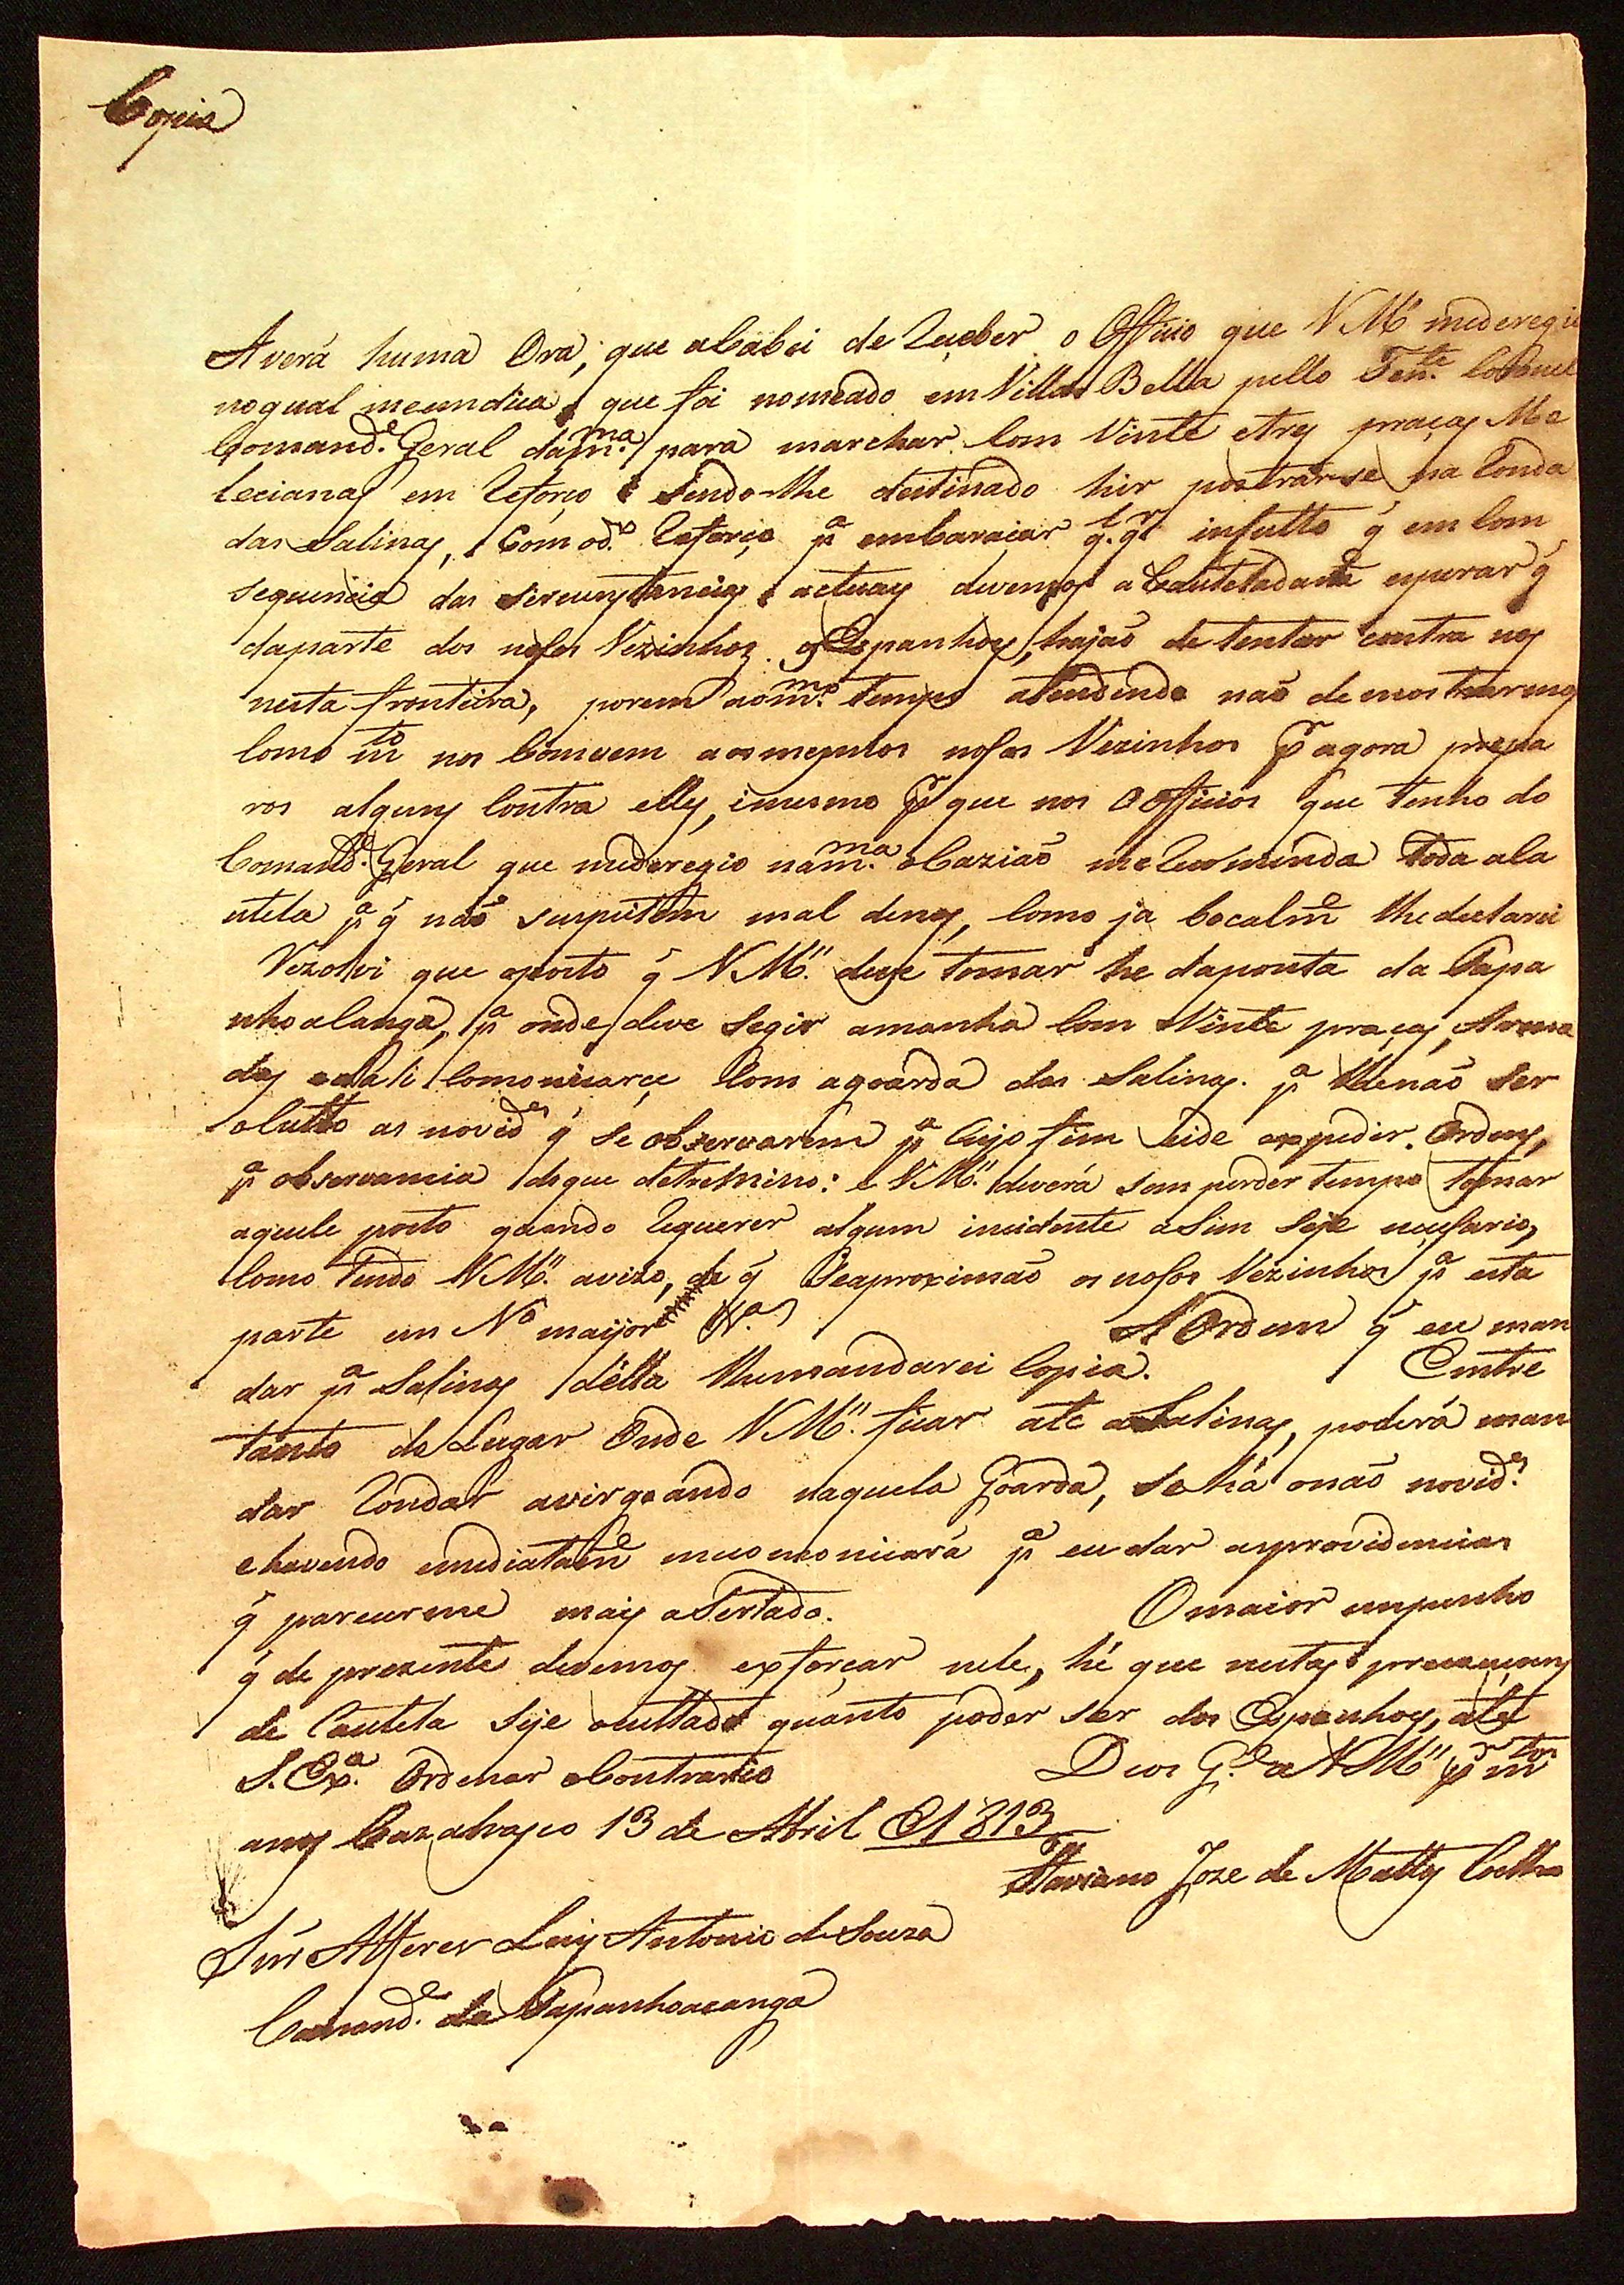 Copia
Averá huma Ora, que aCabei de Receber o Officio que VM.ce mederegio
noqual meendica, que foi nomeado em Villa Bella pello Ten.te Coronel
Comand.e Geral dam.ma para marchar Com Vinte etres praças Me
lecianas em Reforço e Sendo-lhe destinado hir postrar-se na Ronda
das Salinas, Com od.o Reforço p.a embaraçar q.l q.r insulto q̃ em Com
sequencia das sircunstancias actuaes devemos aCauteladam.te esperar q̃
daparte dos nosos Vezinhos os Espanhoes, hajaõ de tentar contra nos
nesta fronteira, porem aom.mo tempo atendendo naõ demostraremos
Como m.to nos Comvem aosmesmos nosos Vezinhos p.r agora prepa
ros alguns Contra elles, imesmo p.r que nos Officios que tenho do
Comand.e Geral que mederegio nam.ma oCaziaõ meRecomenda toda aCa
utela p.a q̃ naõ suspeitem mal denos, Como ja bocalm.e lhedeclarei
Rezolvi que oposto q̃ VM.ce deve tomar he daponta da Tapa
nhoaCanga, p.a onde deve Segir amanhã Com Vinte praças, Arma
das edali Comonicarçe Com agoarda das Salinas. p.a lhenaõ Ser
oCulto as novid.es q̃ se observarem p.a Cujo fim heide expedir Ordens,
p.a observancia doque detremino: e VM.ce deverá sem perder tempo tomar
aquele posto quando Requerer algum incidente aSim Seje necesario,
Como tendo VM.ce avizo, de q̃ Seaproximaõ os nosos Vezinhos p.a esta
parte em N.o maijor V.as A Ordem q̃ eu man
dar p.a Salinas della lhemandarei Copia. Emtre
tanto do Lugar Onde VM.ce ficar ate aSalinas, poderá man
dar Rondar avirgoando naquela Goarda, se há onaõ novid.e
ehavendo emediatam.e mecomonicará p.a eu dar asprovidencias
q̃ parecerme mais aSertado. Omaior empenho
q̃ de prezente devemos exforçar nele, hé que nestas precauçoens
de Cautela Seje ocultado quanto poder ser dos Espanhoes, ate
S. Ex.a Ordenar oContrario Deos G.e a VM.ce p.r m.tos
anos Cazalvasco 13 de Abril E1813
Flaviano Joze de Mattos Coelho
Snr Alferes Luis Antonio deSouza
Comand.e da Tapanhoacanga